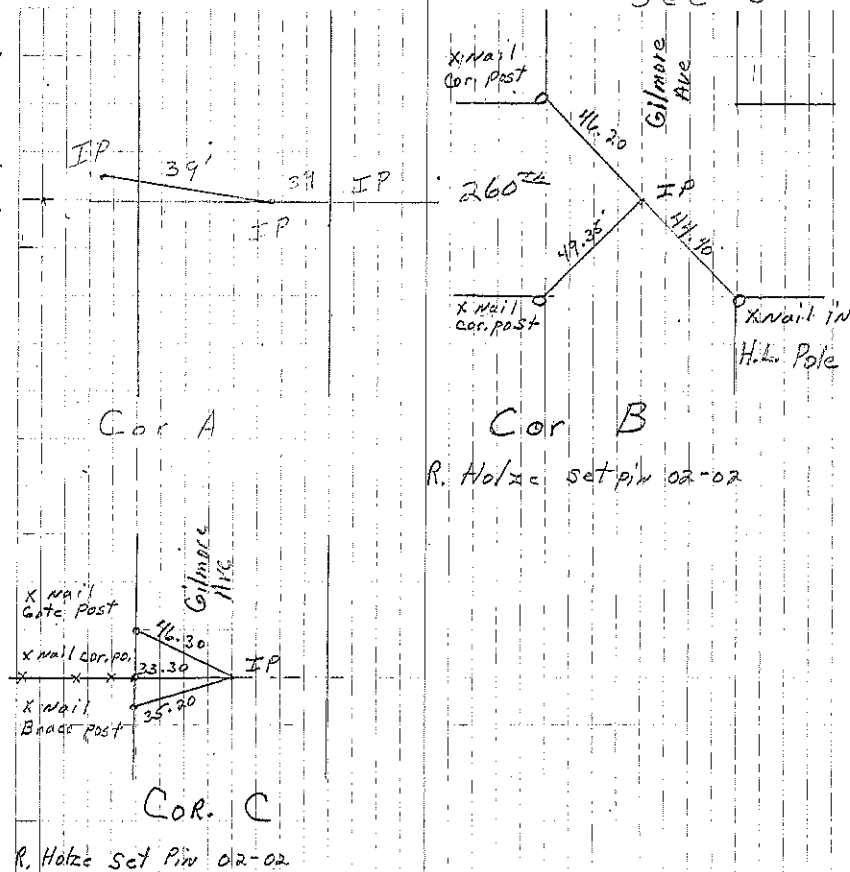 IP
39'
39
IP
IP
Cor A
X Nail
Cor. Post
Gilmore
Ave
46.20
260TH
IP
49.35'
44.40
X Nail
cor. post
X Nail in
H.L. Pole
Cor B
R. Holze set pin 02-02
Gilmore
Ave
X Nail
Gate Post
46.30
X Nail cor. po.
33.30
IP
X Nail
Brace Post
35.20
COR. C
R. Holze Set Pin 02-02